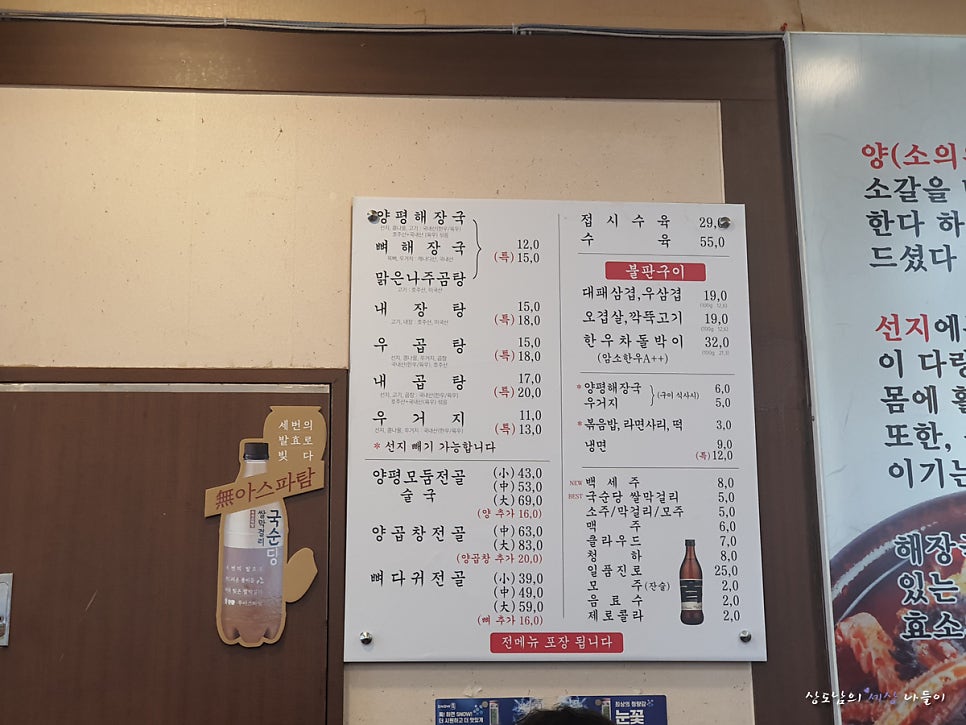 세번의
발효로
빚다
無아스파탐
국순당
쌀막걸리
양평해장국
뼈해장국
맑은나주곰탕
12,0
(특)15,0
내장탕
15,0
(특)18,0
우곱탕
15,0
(특)18,0
내곱탕
17,0
(특)20,0
우거지
11,0
(특)13,0
*선지 빼기 가능합니다
양평모둠전골
술국
(小)43,0
(中)53,0
(大)69,0
(양 추가 16,0)
양곱창전골
(中)63,0
(大)83,0
(양곱창 추가 20,0)
뼈다귀전골
(小)39,0
(中)49,0
(大)59,0
(뼈 추가 16,0)
접시수육 29,0
수육 55,0
불판구이
대패삼겹,우삼겹 19,0
오겹살,깍뚝고기 19,0
한우차돌박이 32,0
(암소한우A++)
*양평해장국 6,0
우거지 5,0
(구이 식사시)
*볶음밥, 라면사리, 떡 3,0
냉면 9,0
(특)12,0
NEW 백세주 8,0
BEST 국순당 쌀막걸리 5,0
소주/막걸리/모주 5,0
맥주 6,0
클라우드 7,0
청하 8,0
일품진로 25,0
모주(잔술) 2,0
음료수 2,0
제로콜라 2,0
전메뉴 포장 됩니다
양(소의
소갈을
한다 하
드셨다
선지에
이 다량
몸에 활
또한,
이기는
해장국
있는
효소
눈꽃
상도남의 세상 나들이